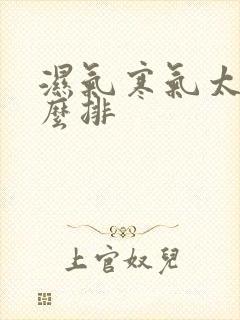 濕氣寒氣太
麼排
上官奴兒